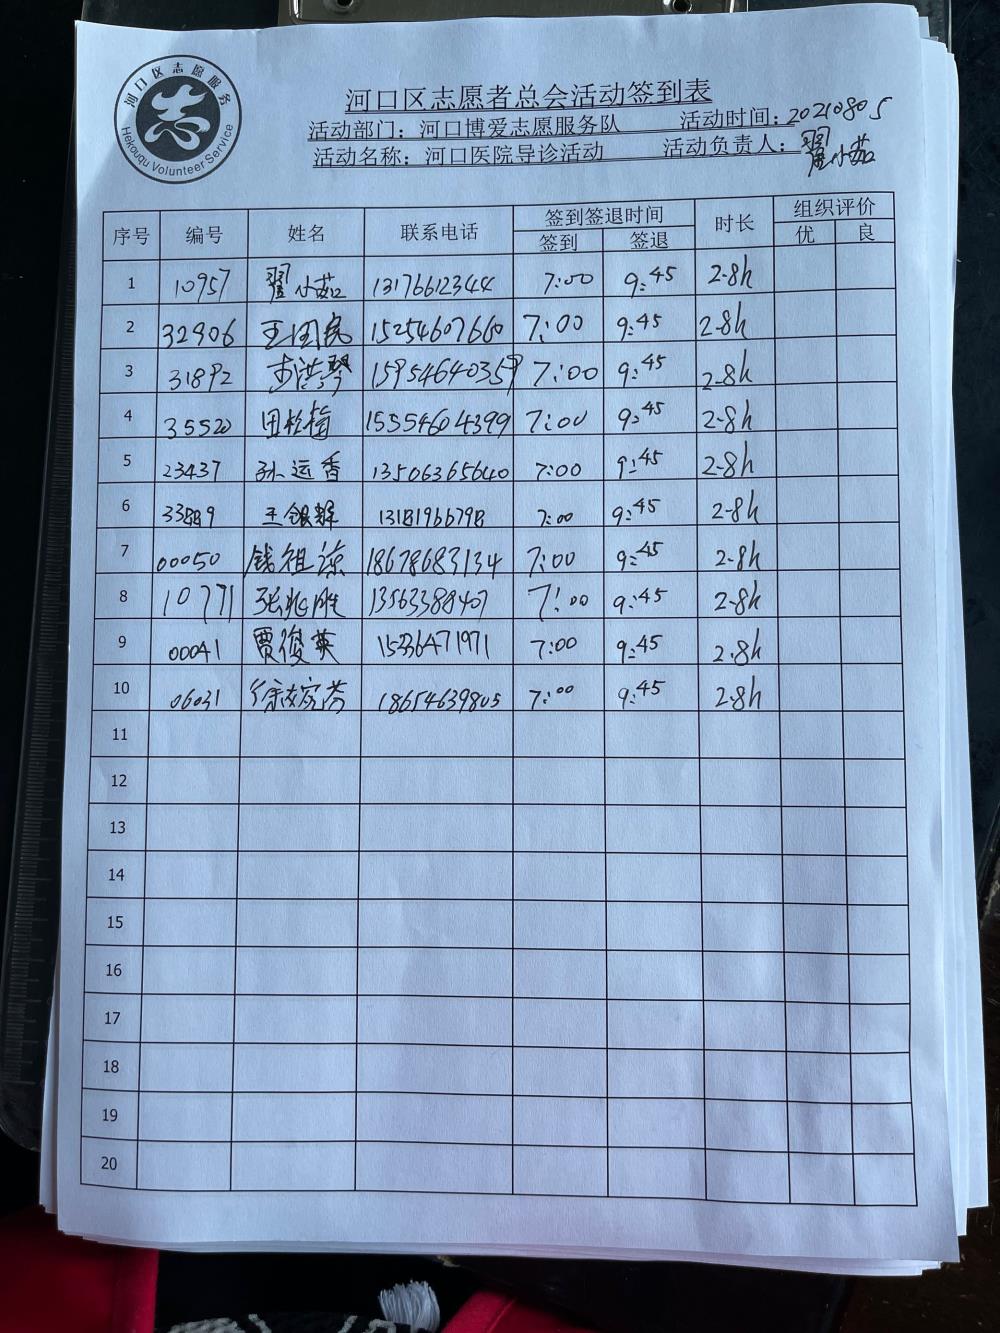 河口区志愿服务
志
Hekouqu Volunteer Service
河口区志愿者总会活动签到表
活动部门：河口博爱志愿服务队 活动时间：20210805
活动名称：河口医院导诊活动 活动负责人：翟小茹
序号 编号 姓名 联系电话 签到签退时间 时长 组织评价
签到 签退 优 良
1 10957 翟小茹 13176612344 7:00 9:45 2.8h
2 32906 王国民 15254607660 7:00 9:45 2.8h
3 31892 李洪琴 15954640359 7:00 9:45 2.8h
4 35520 田松梅 15554604399 7:00 9:45 2.8h
5 23437 孙运香 13506365640 7:00 9:45 2.8h
6 王银 7:00 9:45 2.8h
7 00050 钱祖 18678683134 7:00 9:45 2.8h
8 10771 张兆胜 13563388407 7:00 9:45 2.8h
9 00041 贾俊英 15336471971 7:00 9:45 2.8h
10 06031 徐 芬 18654639805 7:00 9:45 2.8h
11
12
13
14
15
16
17
18
19
20